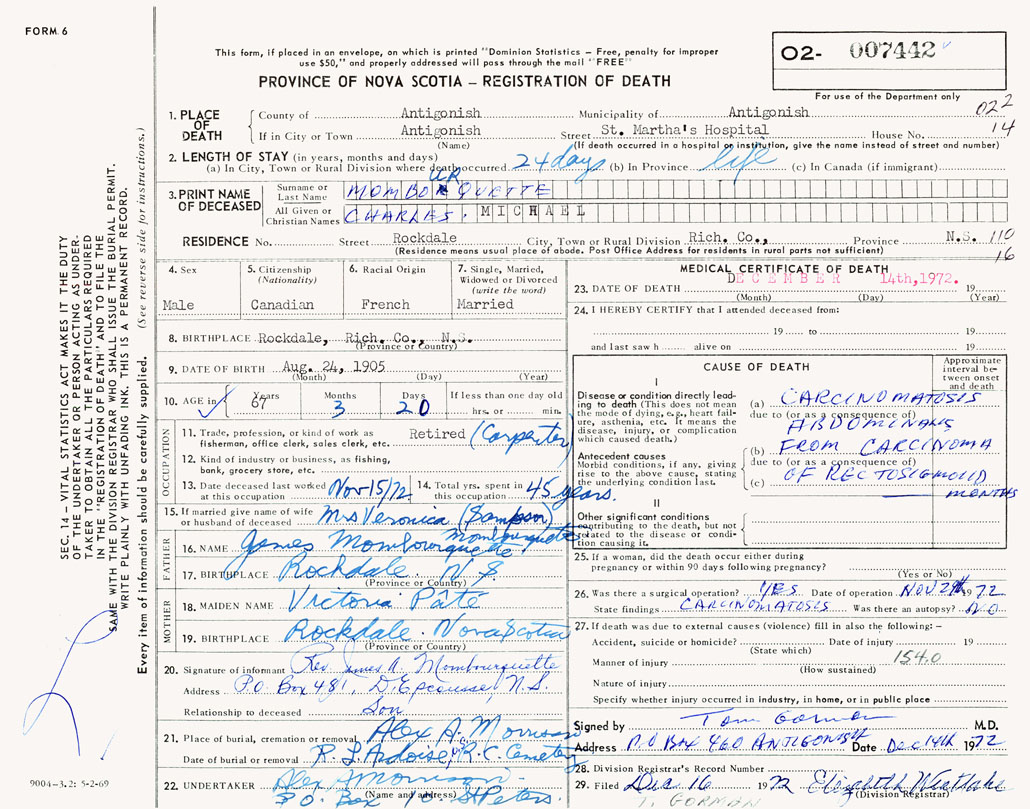 FORM 6
This form, if placed in an envelope, on which is printed "Dominion Statistics – Free, penalty for improper
use $50," and properly addressed will pass through the mail "FREE"
PROVINCE OF NOVA SCOTIA – REGISTRATION OF DEATH
02- 007442
For use of the Department only
022
14
1. PLACE OF DEATH
County of Antigonish Municipality of Antigonish
If in City or Town Antigonish Street St. Martha's Hospital House No.
(Name) (If death occurred in a hospital or institution, give the name instead of street and number)
2. LENGTH OF STAY (in years, months and days)
(a) In City, Town or Rural Division where death occurred 24 days (b) In Province life (c) In Canada (if immigrant)
3. PRINT NAME OF DECEASED
Surname or Last Name MOMBOURQUETTE
All Given or Christian Names CHARLES. MICHAEL
RESIDENCE No. Street Rockdale City, Town or Rural Division Rich. Co., Province N.S. 110
(Residence means usual place of abode. Post Office Address for residents in rural parts not sufficient) 16
4. Sex
Male
5. Citizenship (Nationality)
Canadian
6. Racial Origin
French
7. Single, Married, Widowed or Divorced (write the word)
Married
8. BIRTHPLACE Rockdale, Rich. Co., N.S.
(Province or Country)
9. DATE OF BIRTH Aug. 24, 1905
(Month) (Day) (Year)
10. AGE in Years 67 Months 3 Days 20 If less than one day old hrs. or min.
OCCUPATION
11. Trade, profession, or kind of work as Retired (Carpenter)
fisherman, office clerk, sales clerk, etc.
12. Kind of industry or business, as fishing,
bank, grocery store, etc.
13. Date deceased last worked at this occupation Nov 15/72 14. Total yrs. spent in this occupation 45 years.
15. If married give name of wife or husband of deceased Mrs Veronica (Sampson) Mombourquette
FATHER
16. NAME James Mombourquette
17. BIRTHPLACE Rockdale. N S
(Province or Country)
MOTHER
18. MAIDEN NAME Victoria Pâté
19. BIRTHPLACE Rockdale. Nova Scotia
(Province or Country)
20. Signature of informant Rev. James A. Mombourquette
Address P.O. Box 481, D'Escousse, N.S.
Relationship to deceased Son
21. Place of burial, cremation or removal Alex A. Morrison
Date of burial or removal R. L'Ardoise, R.C. Cemetery
22. UNDERTAKER Alex A Morrison
(Name and address) P.O. Box 10 St Peters.
MEDICAL CERTIFICATE OF DEATH
23. DATE OF DEATH DECEMBER 14th, 1972. 19
(Month) (Day) (Year)
24. I HEREBY CERTIFY that I attended deceased from:
19 to 19
and last saw h alive on 19
CAUSE OF DEATH
Approximate interval between onset and death
I
Disease or condition directly leading to death (This does not mean the mode of dying, e.g., heart failure, asthenia, etc. It means the disease, injury, or complication which caused death.)
(a) CARCINOMATOSIS
due to (or as a consequence of)
ABDOMINALIS
Antecedent causes
Morbid conditions, if any, giving rise to the above cause, stating the underlying condition last.
(b) FROM CARCINOMA
due to (or as a consequence of)
(c) OF RECTOSIGMOID
MONTHS
II
Other significant conditions
contributing to the death, but not related to the disease or condition causing it.
25. If a woman, did the death occur either during
pregnancy or within 90 days following pregnancy?
(Yes or No)
26. Was there a surgical operation? YES Date of operation NOV 29th 1972
State findings CARCINOMATOSIS Was there an autopsy? NO
27. If death was due to external causes (violence) fill in also the following: –
Accident, suicide or homicide? Date of injury 19
(State which)
Manner of injury 154.0
(How sustained)
Nature of injury
Specify whether injury occurred in industry, in home, or in public place
Signed by Tom Gorman M.D.
Address P.O BOX 460 ANTIGONISH Date Dec 14th 1972
28. Division Registrar's Record Number
29. Filed Dec 16 1972 Elizabeth Westlake
(Division Registrar)
T. GORMAN
SEC. 14 – VITAL STATISTICS ACT MAKES IT THE DUTY
OF THE UNDERTAKER OR PERSON ACTING AS UNDER-
TAKER TO OBTAIN ALL THE PARTICULARS REQUIRED
IN THE "REGISTRATION OF DEATH" AND TO FILE THE
SAME WITH THE DIVISION REGISTRAR WHO SHALL ISSUE THE BURIAL PERMIT.
WRITE PLAINLY WITH UNFADING INK. THIS IS A PERMANENT RECORD.
Every item of information should be carefully supplied. (See reverse side for instructions.)
9004–3.2: 5-2-69